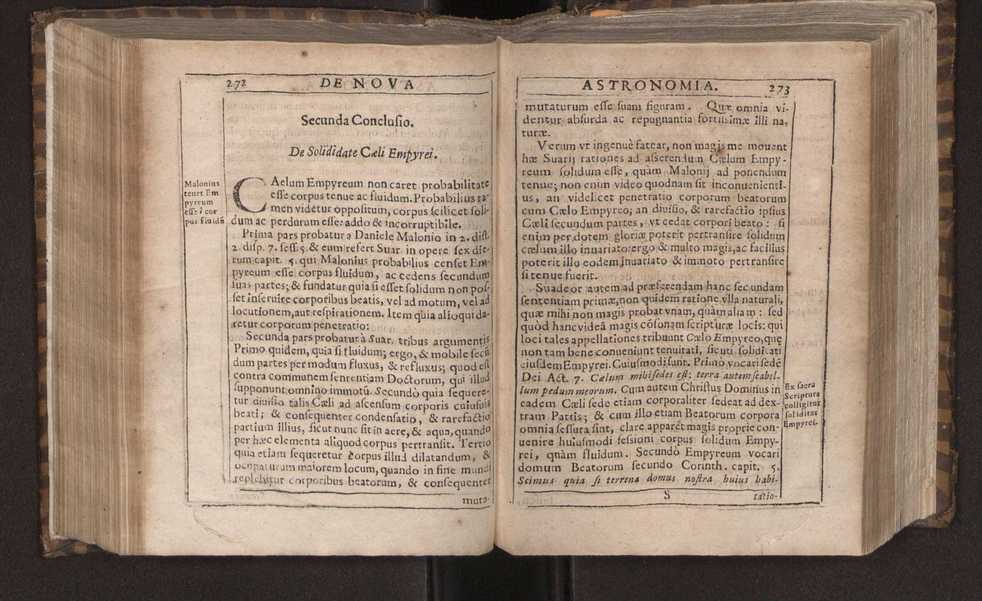 272
DE NOVA
Secunda Conclusio.
De Solididate Cæli Empyrei.
Malonius
tenet Em
pyreum
esse cor
pus fluidũ
CAelum Empyreum non caret probabilitate
esse corpus tenue ac fluidum. Probabilius ta-
men videtur oppositum, corpus scilicet soli-
dum ac perdurum esse: addo & incorruptibile.
Prima pars probatur a Daniele Malonio in 2. dist.
2. disp. 7. sess. 5. & eum refert Suar. in opere sex die-
rum capit. 5. qui Malonius probabilius censet Em-
pyreum esse corpus fluidum, ac cedens secundum
suas partes; & fundatur quia si esset solidum non pos-
set inseruire corporibus beatis, vel ad motum, vel ad
locutionem, aut respirationem. Item quia alioqui da-
retur corporum penetratio:
Secunda pars probatur à Suar. tribus argumentis
Primo quidem, quia si fluidum; ergo, & mobile secũ
dum partes per modum fluxus, & refluxus; quod est
contra communem sententiam Doctorum, qui illud
supponunt omnino immotũ. Secundò quia sequere-
tur diuisio talis Cæli ad ascensum corporis cuiusuis
beati; & consequenter condensatio, & rarefactio
partium illius, sicut nunc fit in aere, & aqua, quando
per hæc elementa aliquod corpus pertransit. Tertio
quia etiam sequeretur corpus illud dilatandum, &
ocupaturum maiorem locum, quando in fine mundi
replebitur corporibus beatorum, & consequenter
muta-
ASTRONOMIA.
273
mutaturum esse suam figuram. Quæ omnia vi-
dentur absurda ac repugnantia fortissimæ illi na-
turæ.
Verum vt ingenuè fatear, non magis me mouent
hæ Suarij rationes ad asserendum Cælum Empy-
reum solidum esse, quàm Malonij ad ponendum
tenue; non enim video quodnam sit inconuenienti-
us, an videlicet penetratio corporum beatorum
cum Cælo Empyreo, an diuisio, & rarefactio ipsius
Cæli secundum partes, vt cedat corpori beato: si
enim per dotem gloriæ poterit pertransire solidum
cælum illo inuariato: ergo & multo magis, ac facilius
poterit illo eodem inuariato & immoto pertransire
si tenue fuerit.
Suadeor autem ad præferendam hanc secundam
sententiam primæ, non quidem ratione vlla naturali,
quæ mihi non magis probat vnam, quàm aliam: sed
quòd hanc videã magis cõsonam scripturæ locis: qui
loci tales appellationes tribuunt Cælo Empyreo, quę
non tam bene conueniunt tenuitati, sicuti soliditati
eiusdem Empyrei. Cuiusmodi sunt. Primò vocari sedẽ
Dei Act. 7. Cælum mihi sedes est; terra autem scabil-
lum pedum meorum. Cum autem Christus Dominus in
eadem Cæli sede etiam corporaliter sedeat ad dex-
tram Patris; & cum illo etiam Beatorum corpora
omnia sessura sint, clare apparet magis proprie con-
uenire huiusmodi sessioni corpus solidum Empy-
rei, quàm fluidum. Secundò Empyreum vocari
domum Beatorum secundo Corinth. capit. 5.
Scimus quia si terrena domus nostra huius habi-
Ex sacra
Scriptura
colligitur
soliditas
Empyrei.
S
tatio-